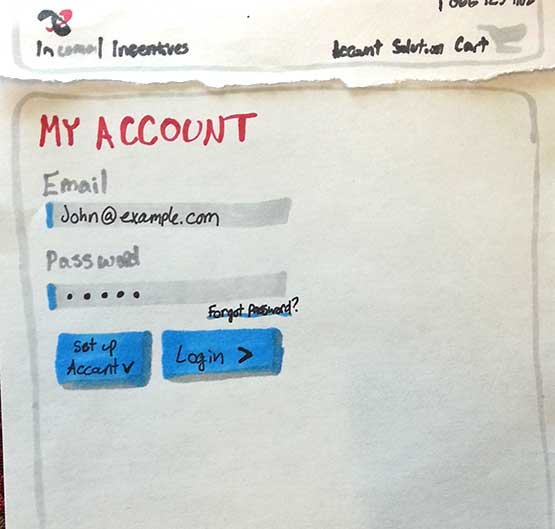 Incentives
Account Solution Cart
MY ACCOUNT
Email
John@example.com
Password
•••••
Forgot Password?
Set up
Accant
Login >